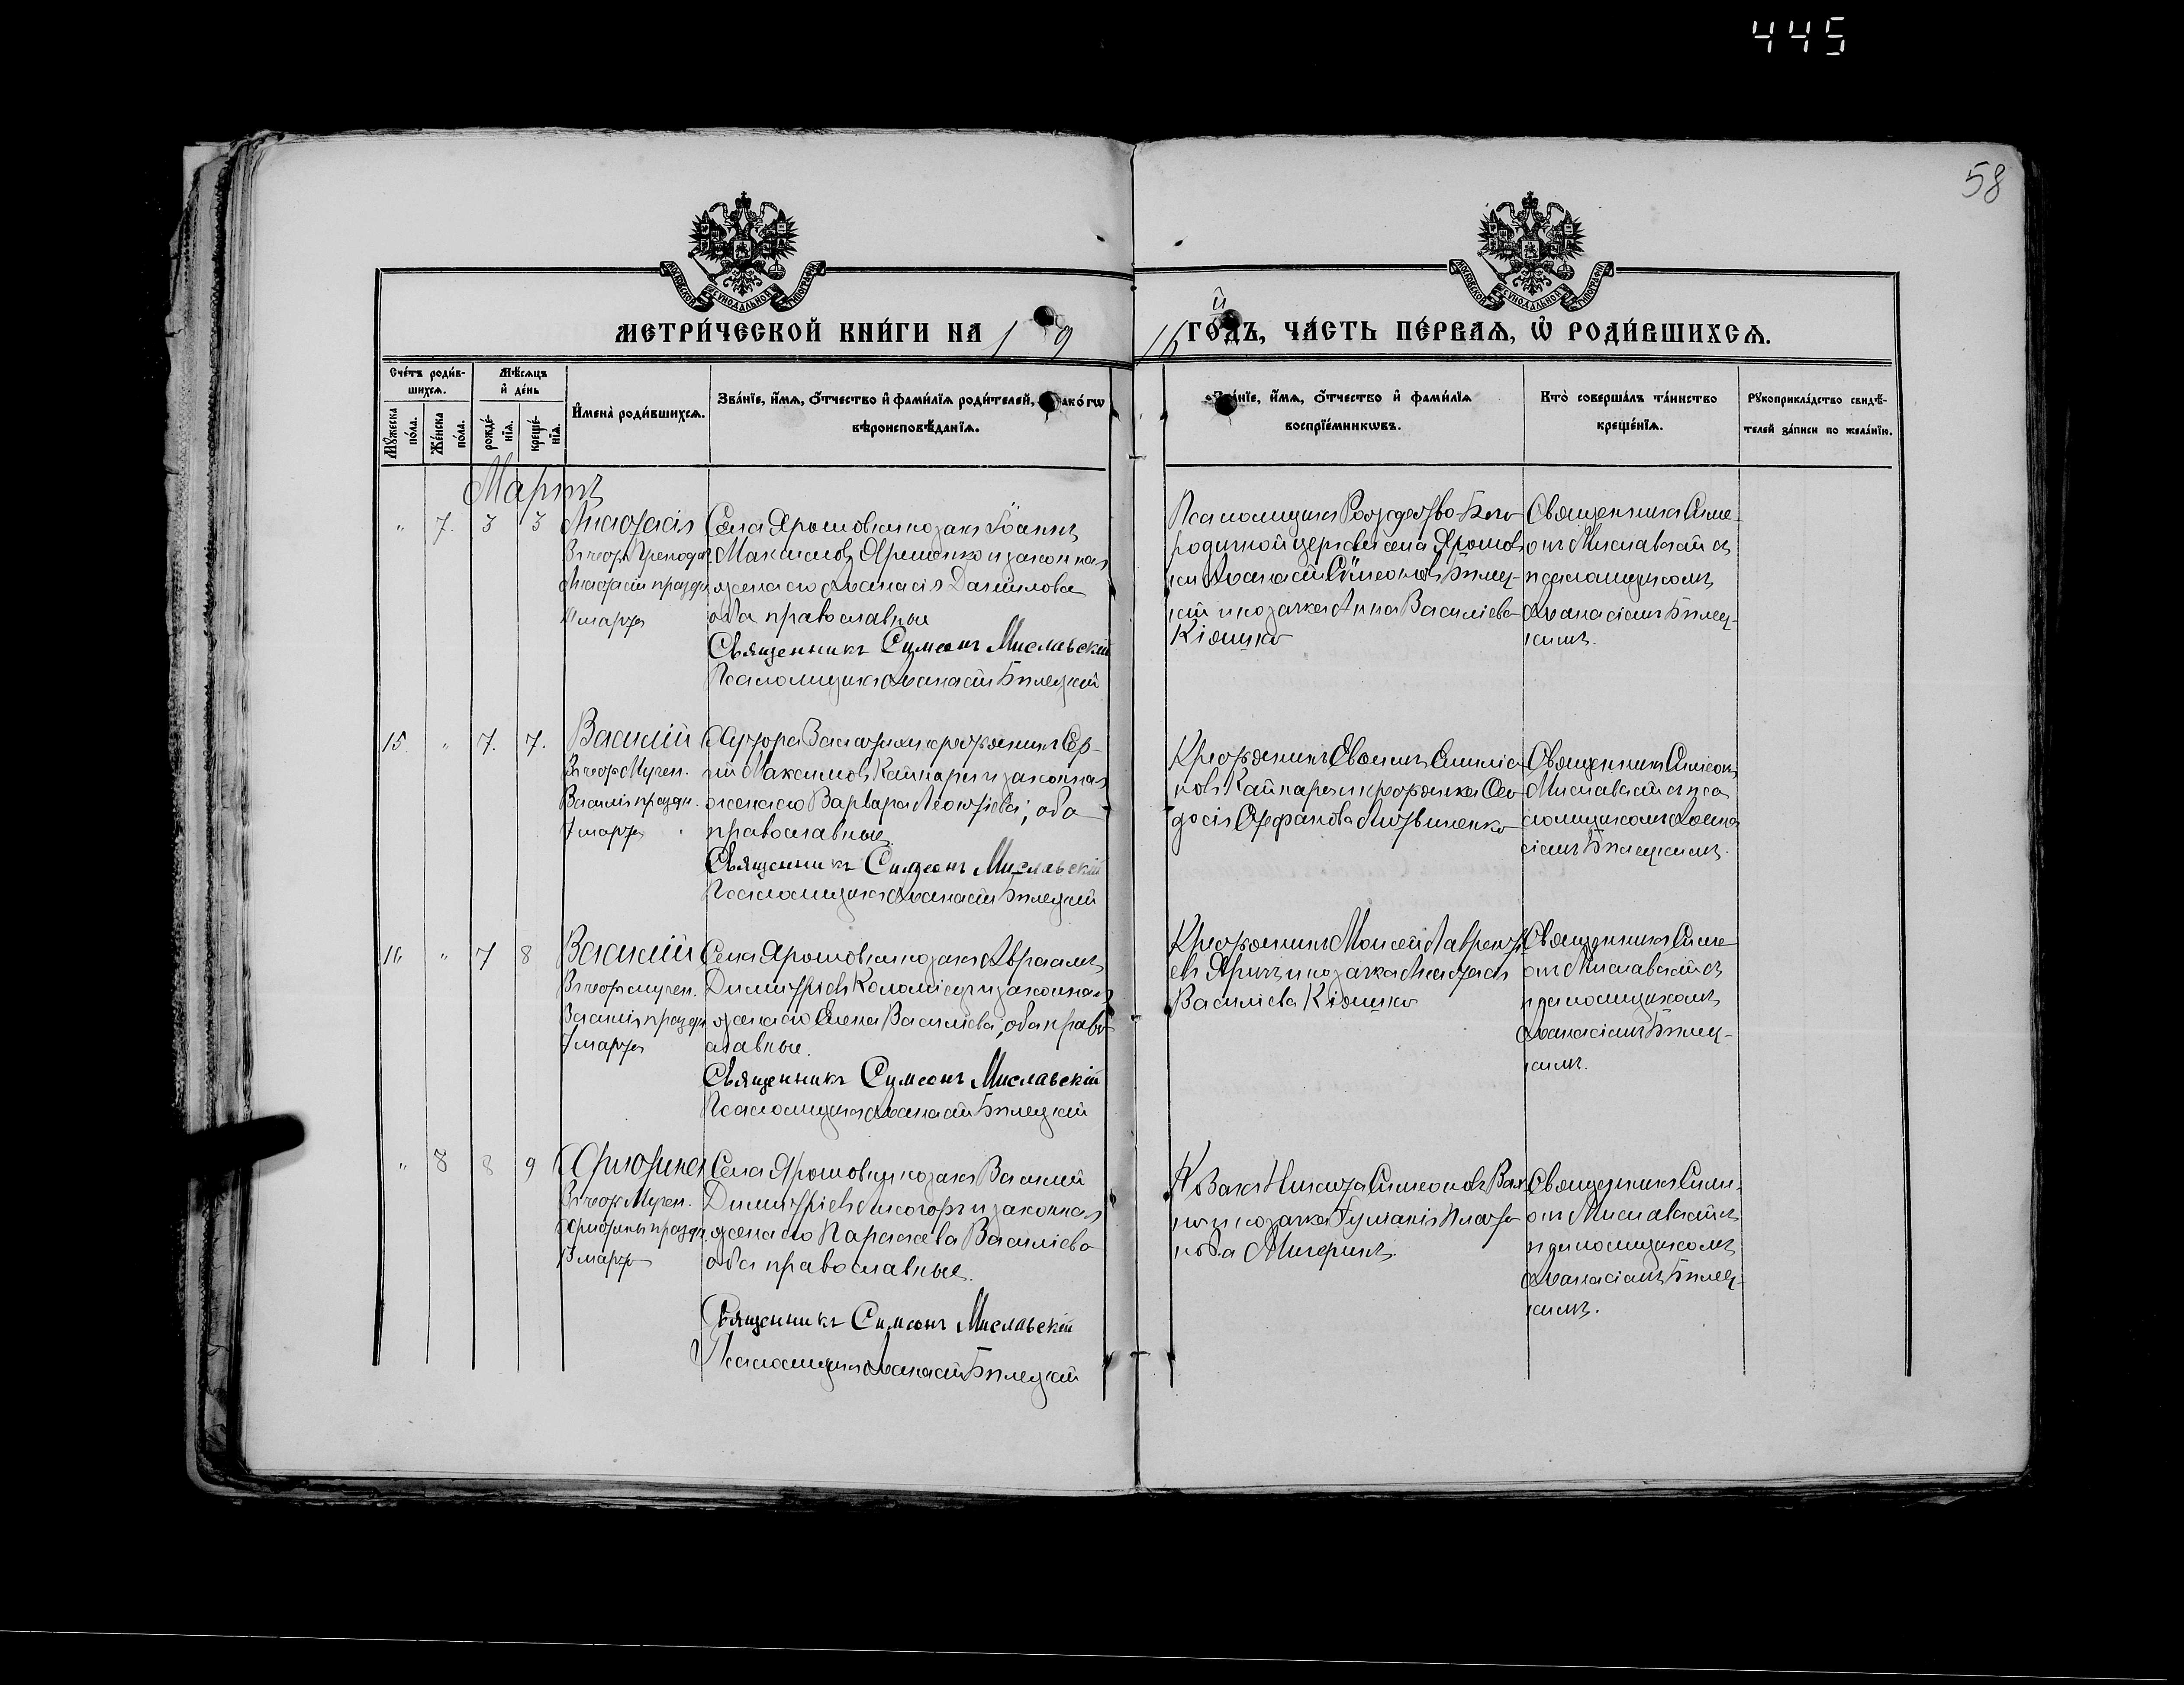 445
58
МОСКОВСКОЙ СѴНОДАЛЬНОЙ ТИПОГРАФІИ
МОСКОВСКОЙ СѴНОДАЛЬНОЙ ТИПОГРАФІИ
МЕТРИ́ЧЕСКОЙ КНИ́ГИ НА 19
16 й ГО́ДЪ, ЧА́СТЬ ПЕ́РВАѦ, Ѡ҆ РОДИ́ВШИХСѦ.
Сче́тъ роди́в-
шихсѧ.
Мꙋ́жеска по́ла.
Же́нска по́ла.
Мѣ́сѧцъ
и҆ де́нь
рожде́-
нїѧ.
креще́-
нїѧ.
И҆мена̀ роди́вшихсѧ.
Зва́нїе, и҆́мѧ, ѻ҆́тчество и҆ фамѝлїѧ роди́телей, ако́гѡ
вѣроисповѣ́данїѧ.
нїе, и҆́мѧ, ѻ҆́тчество и҆ фами́лїѧ
воспрїе́мникѡвъ.
Кто̀ соверша́лъ та́инство
креще́нїѧ.
Рꙋкоприкла́дство свидѣ́-
телей за́писи по жела́нїю.
Мартъ
" 7. 3 3 Анастасія
Въ честь Преподоб.
Анастасіи праздн.
марта
Села Ярошовки козакъ Іоаннъ
Максимовъ Яременко и законная
жена его Аѳанасія Даніилова
оба православные
Священникъ Симеонъ Миславскій
Псаломщикъ Аѳанасій Билецкій
Псаломщикъ Рождество-Бого
родичной церкви села Ярошов
ки Аѳанасій Симеоновъ Билец-
кій и козачка Анна Василіева
Кіяшко
Священникъ Симе-
онъ Миславскій съ
псаломщикомъ
Аѳанасіемъ Билец-
кимъ.
15. " 7. 7. Василій
Въ честь Мучен.
Василія праздн.
7 марта
Хутора крестьянинъ Сер-
гій Максимовъ Кайнара и законная
жена его Варвара Леонтіева; оба
православные.
Священникъ Симеонъ Миславскій
Псаломщикъ Аѳанасій Билецкій
Крестьянинъ Евѳимъ Симеоновъ
Кайнара и крестьянка Ѳео
досія Стефанова Литвиненко
Священникъ Симеонъ
Миславскій съ пса
ломщикомъ Аѳана
сіемъ Билецкимъ.
16 " 7 8 Василій
Въ честь мучен.
Василія праздн.
7 марта
Села Ярошовки козакъ Авраамъ
Димитріевъ Коломіецъ и законная
жена его Елена Василіева; оба право
славные.
Священникъ Симеонъ Миславскій
Псаломщикъ Аѳанасій Билецкій
Крестьянинъ Моисей Лавренті
евъ Яричъ и козачка Анастасія
Василіева Кіяшко
Священникъ Симе
онъ Миславскій съ
псаломщикомъ
Аѳанасіемъ Билец-
кимъ.
" 8 8 9 Христина
Въ честь Мучен.
Христины праздн.
13 марта
Села Ярошовки козакъ Василій
Димитріевъ Лисогоръ и законная
жена его Параскева Василіева
оба православные.
Священникъ Симеонъ Миславскій
Псаломщикъ Аѳанасій Билецкій
Козакъ Никита Симеоновъ
и козачка Іуліанія Плато
нова Мигеринъ.
Священникъ Симе-
онъ Миславскій съ
псаломщикомъ
Аѳанасіемъ Билец-
кимъ.